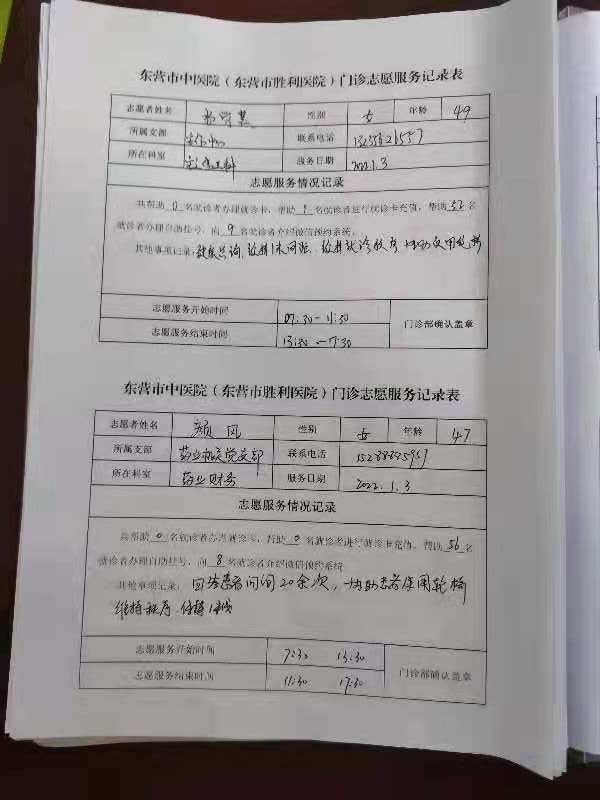 东营市中医院（东营市胜利医院）门诊志愿服务记录表
志愿者姓名 性别 女 年龄 49
所属支部 联系电话
所在科室 服务日期 2022.1.3
志愿服务情况记录
共帮助 0 名就诊者办理就诊卡，帮助 1 名就诊者进行就诊卡充值，帮助 52 名
就诊者办理自助挂号，向 9 名就诊者介绍微信预约系统。
其他事项记录：
志愿服务开始时间 07:30-11:30
志愿服务结束时间 13:30-17:30
门诊部确认盖章
东营市中医院（东营市胜利医院）门诊志愿服务记录表
志愿者姓名 颜风 性别 女 年龄 47
所属支部 药业机关党支部 联系电话
所在科室 药业财务 服务日期 2022.1.3
志愿服务情况记录
共帮助 0 名就诊者办理就诊卡，帮助 0 名就诊者进行就诊卡充值，帮助 56 名
就诊者办理自助挂号，向 8 名就诊者介绍微信预约系统
其他事项记录：回答患者问询20余次，协助患者使用轮椅
维持秩序、
志愿服务开始时间 7:30 13:30
志愿服务结束时间 11:30 17:30
门诊部确认盖章